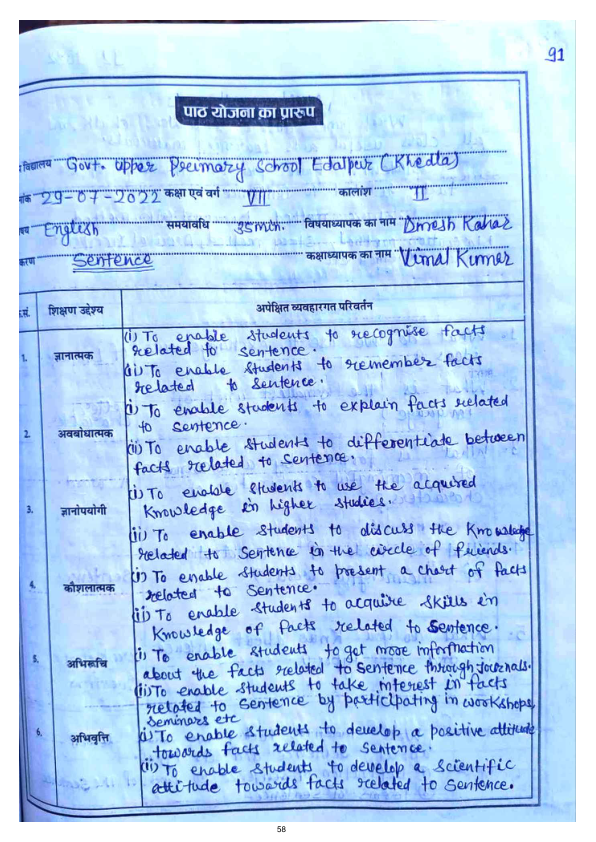 91
पाठ योजना का प्रारूप
विद्यालय Govt. Upper Preimary School Edalpur (Khedla)
29-07-2022 कक्षा एवं वर्ग VII कालांश II
English समयावधि 35min. विषयाध्यापक का नाम Dmesh Kahar
Sentence कक्षाध्यापक का नाम Vimal Kumar
.सं. शिक्षण उद्देश्य अपेक्षित व्यवहारगत परिवर्तन
(i) To enable students to recognise facts
related to sentence.
1. ज्ञानात्मक
(ii) To enable students to remember facts
related to sentence.
(i) To enable students to explain facts related
to sentence.
2. अवबोधात्मक
(ii) To enable students to differentiate between
facts related to sentence.
(i) To enable students to use the acquired
Knowledge in higher studies.
3. ज्ञानोपयोगी
(ii) To enable students to discuss the Knowledge
related to Sentence in the circle of friends.
(i) To enable students to present a chart of facts
related to Sentence.
4. कौशलात्मक
(ii) To enable students to acquire skills in
Knowledge of facts related to Sentence.
(i) To enable students to get more information
5. अभिरूचि
about the facts related to Sentence through Journals.
(ii) To enable students to take interest in facts
related to Sentence by participating in workshops,
Seminars etc
(i) To enable students to develop a positive attitude
6. अभिवृत्ति
towards facts related to Sentence.
(ii) To enable students to develop a scientific
attitude towards facts related to Sentence.
58